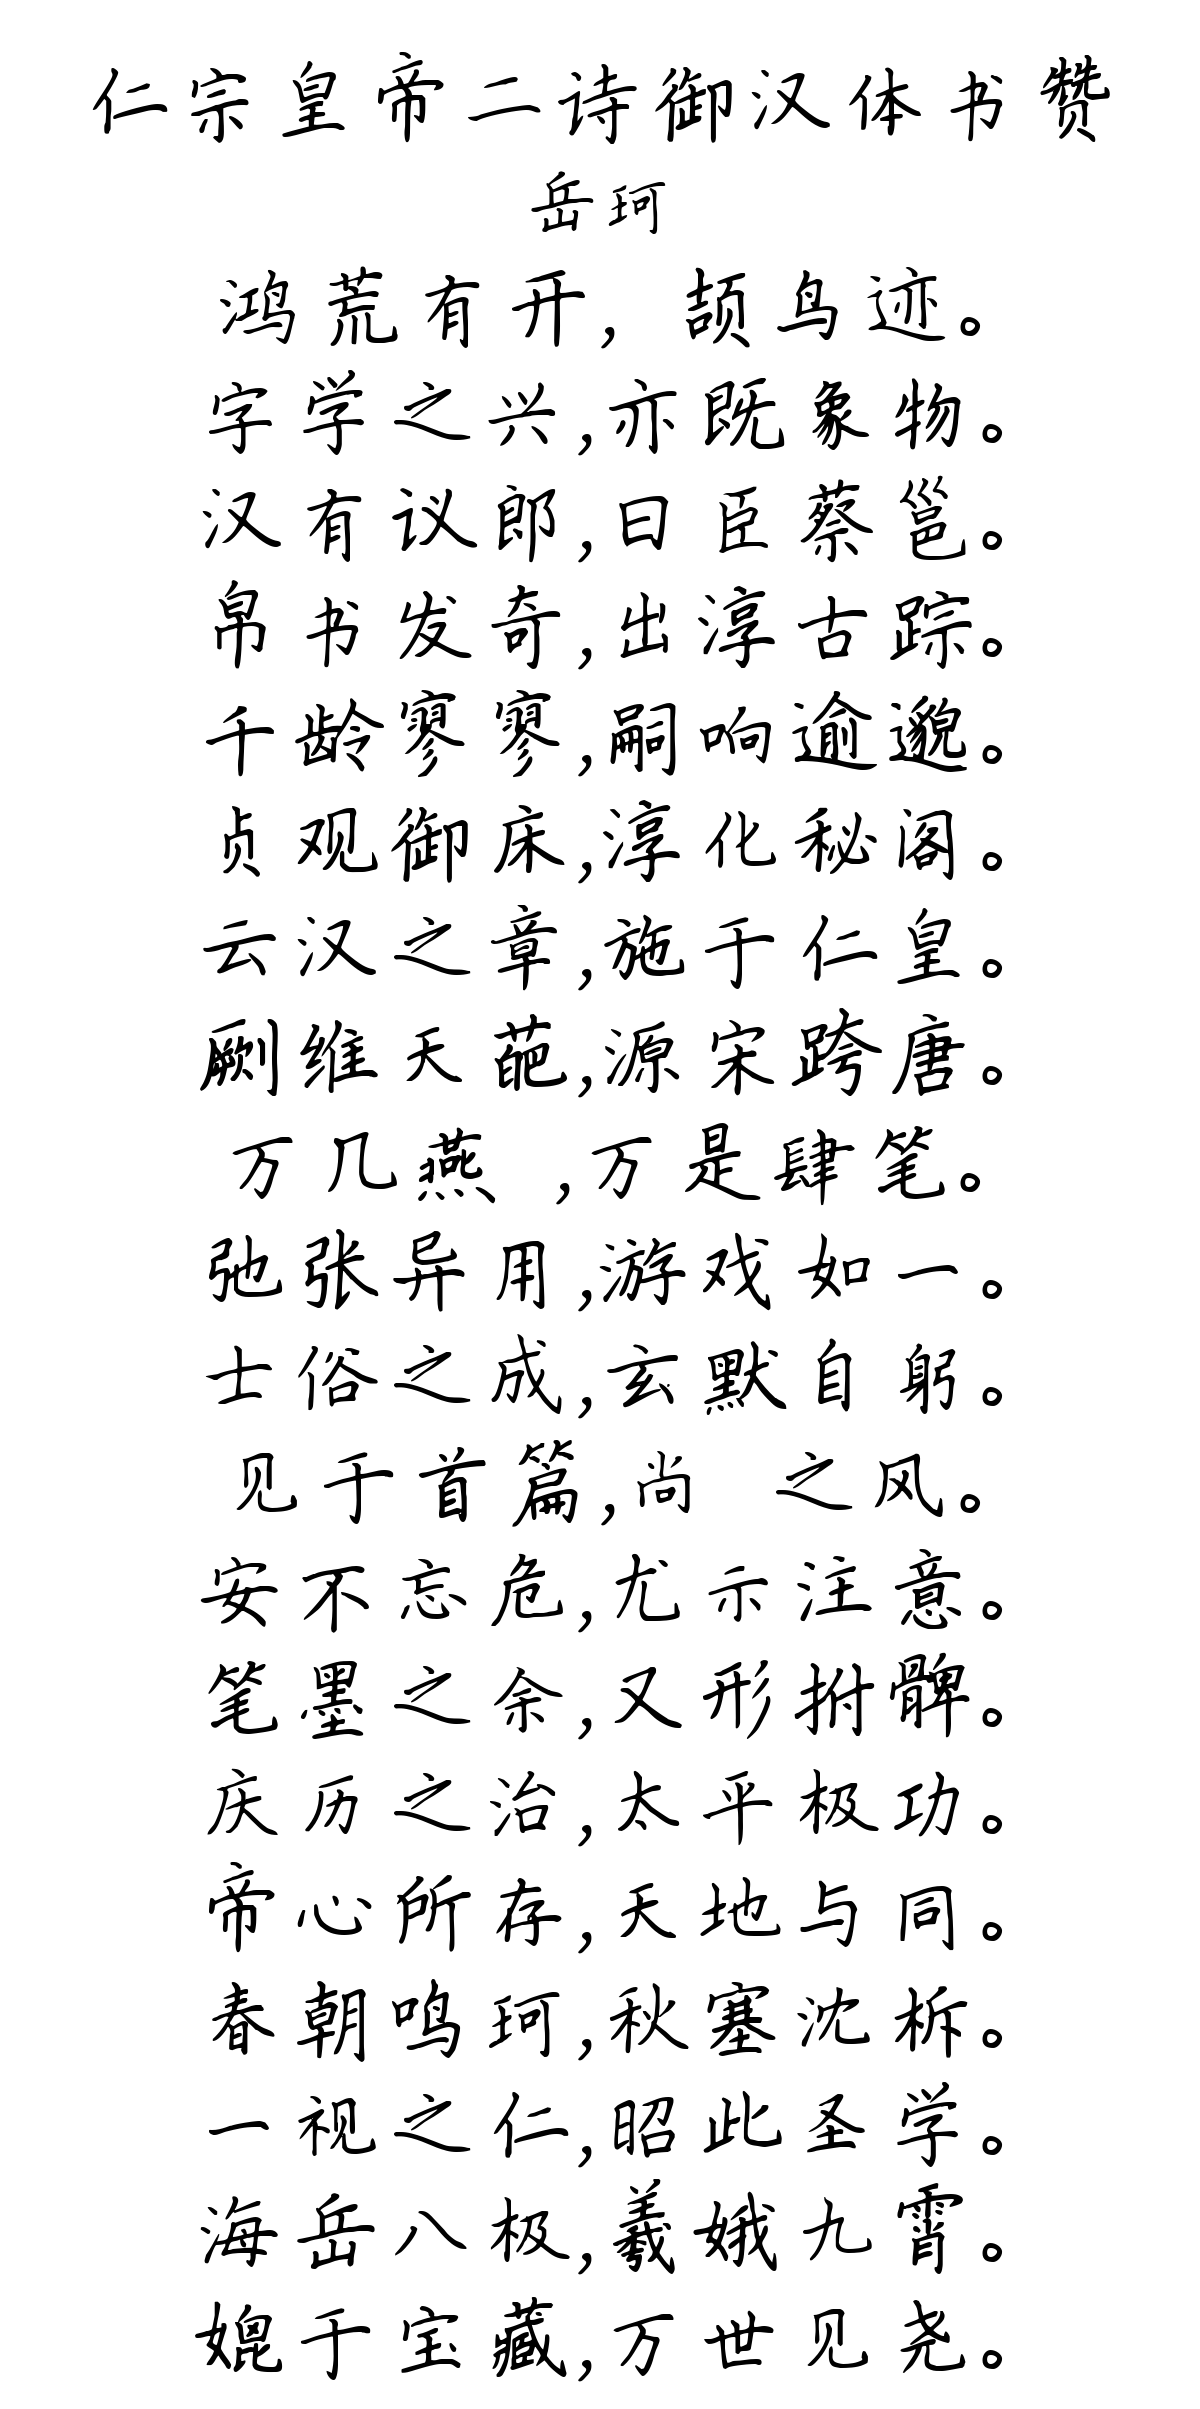 仁宗皇帝二诗御汉体书赞
岳珂
鸿荒有开，颉鸟迹。
字学之兴，亦既象物。
汉有议郎，曰臣蔡邕。
帛书发奇，出淳古踪。
千龄寥寥，嗣响逾邈。
贞观御床，淳化秘阁。
云汉之章，施于仁皇。
劂维天葩，源宋跨唐。
万几燕 ，万是肆笔。
弛张异用，游戏如一。
士俗之成，玄默自躬。
见于首篇，尚 之风。
安不忘危，尤示注意。
笔墨之余，又形拊髀。
庆历之治，太平极功。
帝心所存，天地与同。
春朝鸣珂，秋塞沈柝。
一视之仁，昭此圣学。
海岳八极，羲娥九霄。
媲于宝藏，万世见尧。